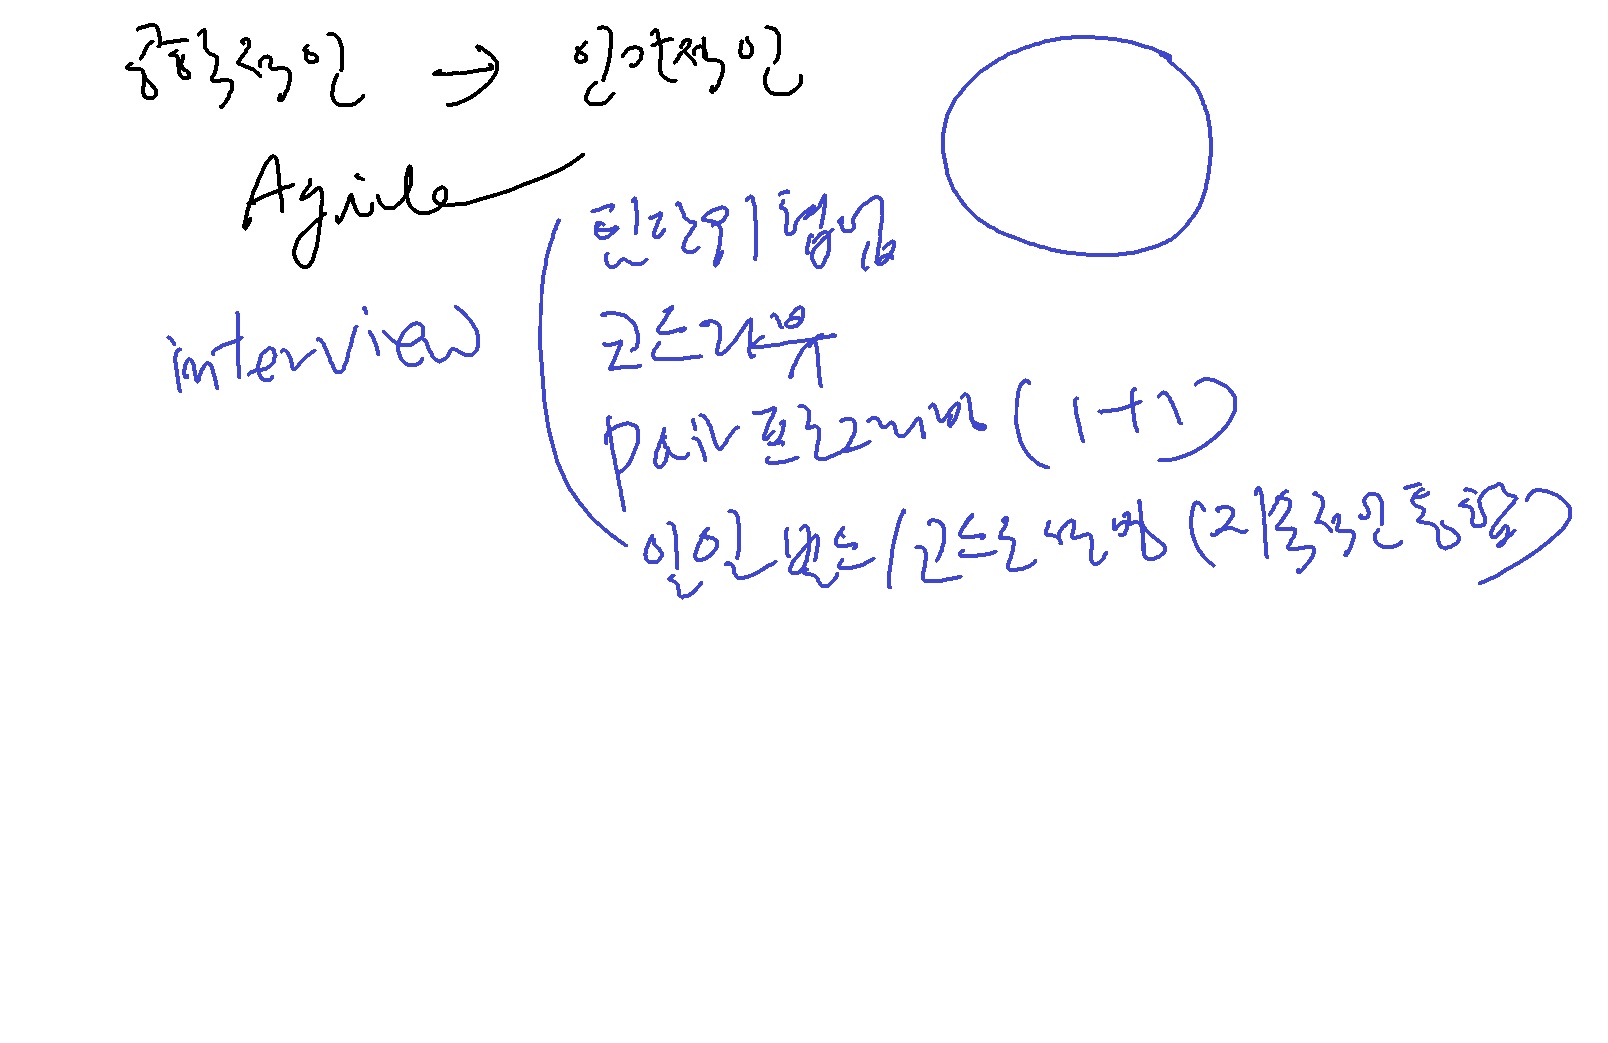 공학적인 → 인간적인
Agile
interview
팀단위 협업
코드리뷰
pair 프로그래밍 (1+1)
일일 빌드 / (지속적인 통합)